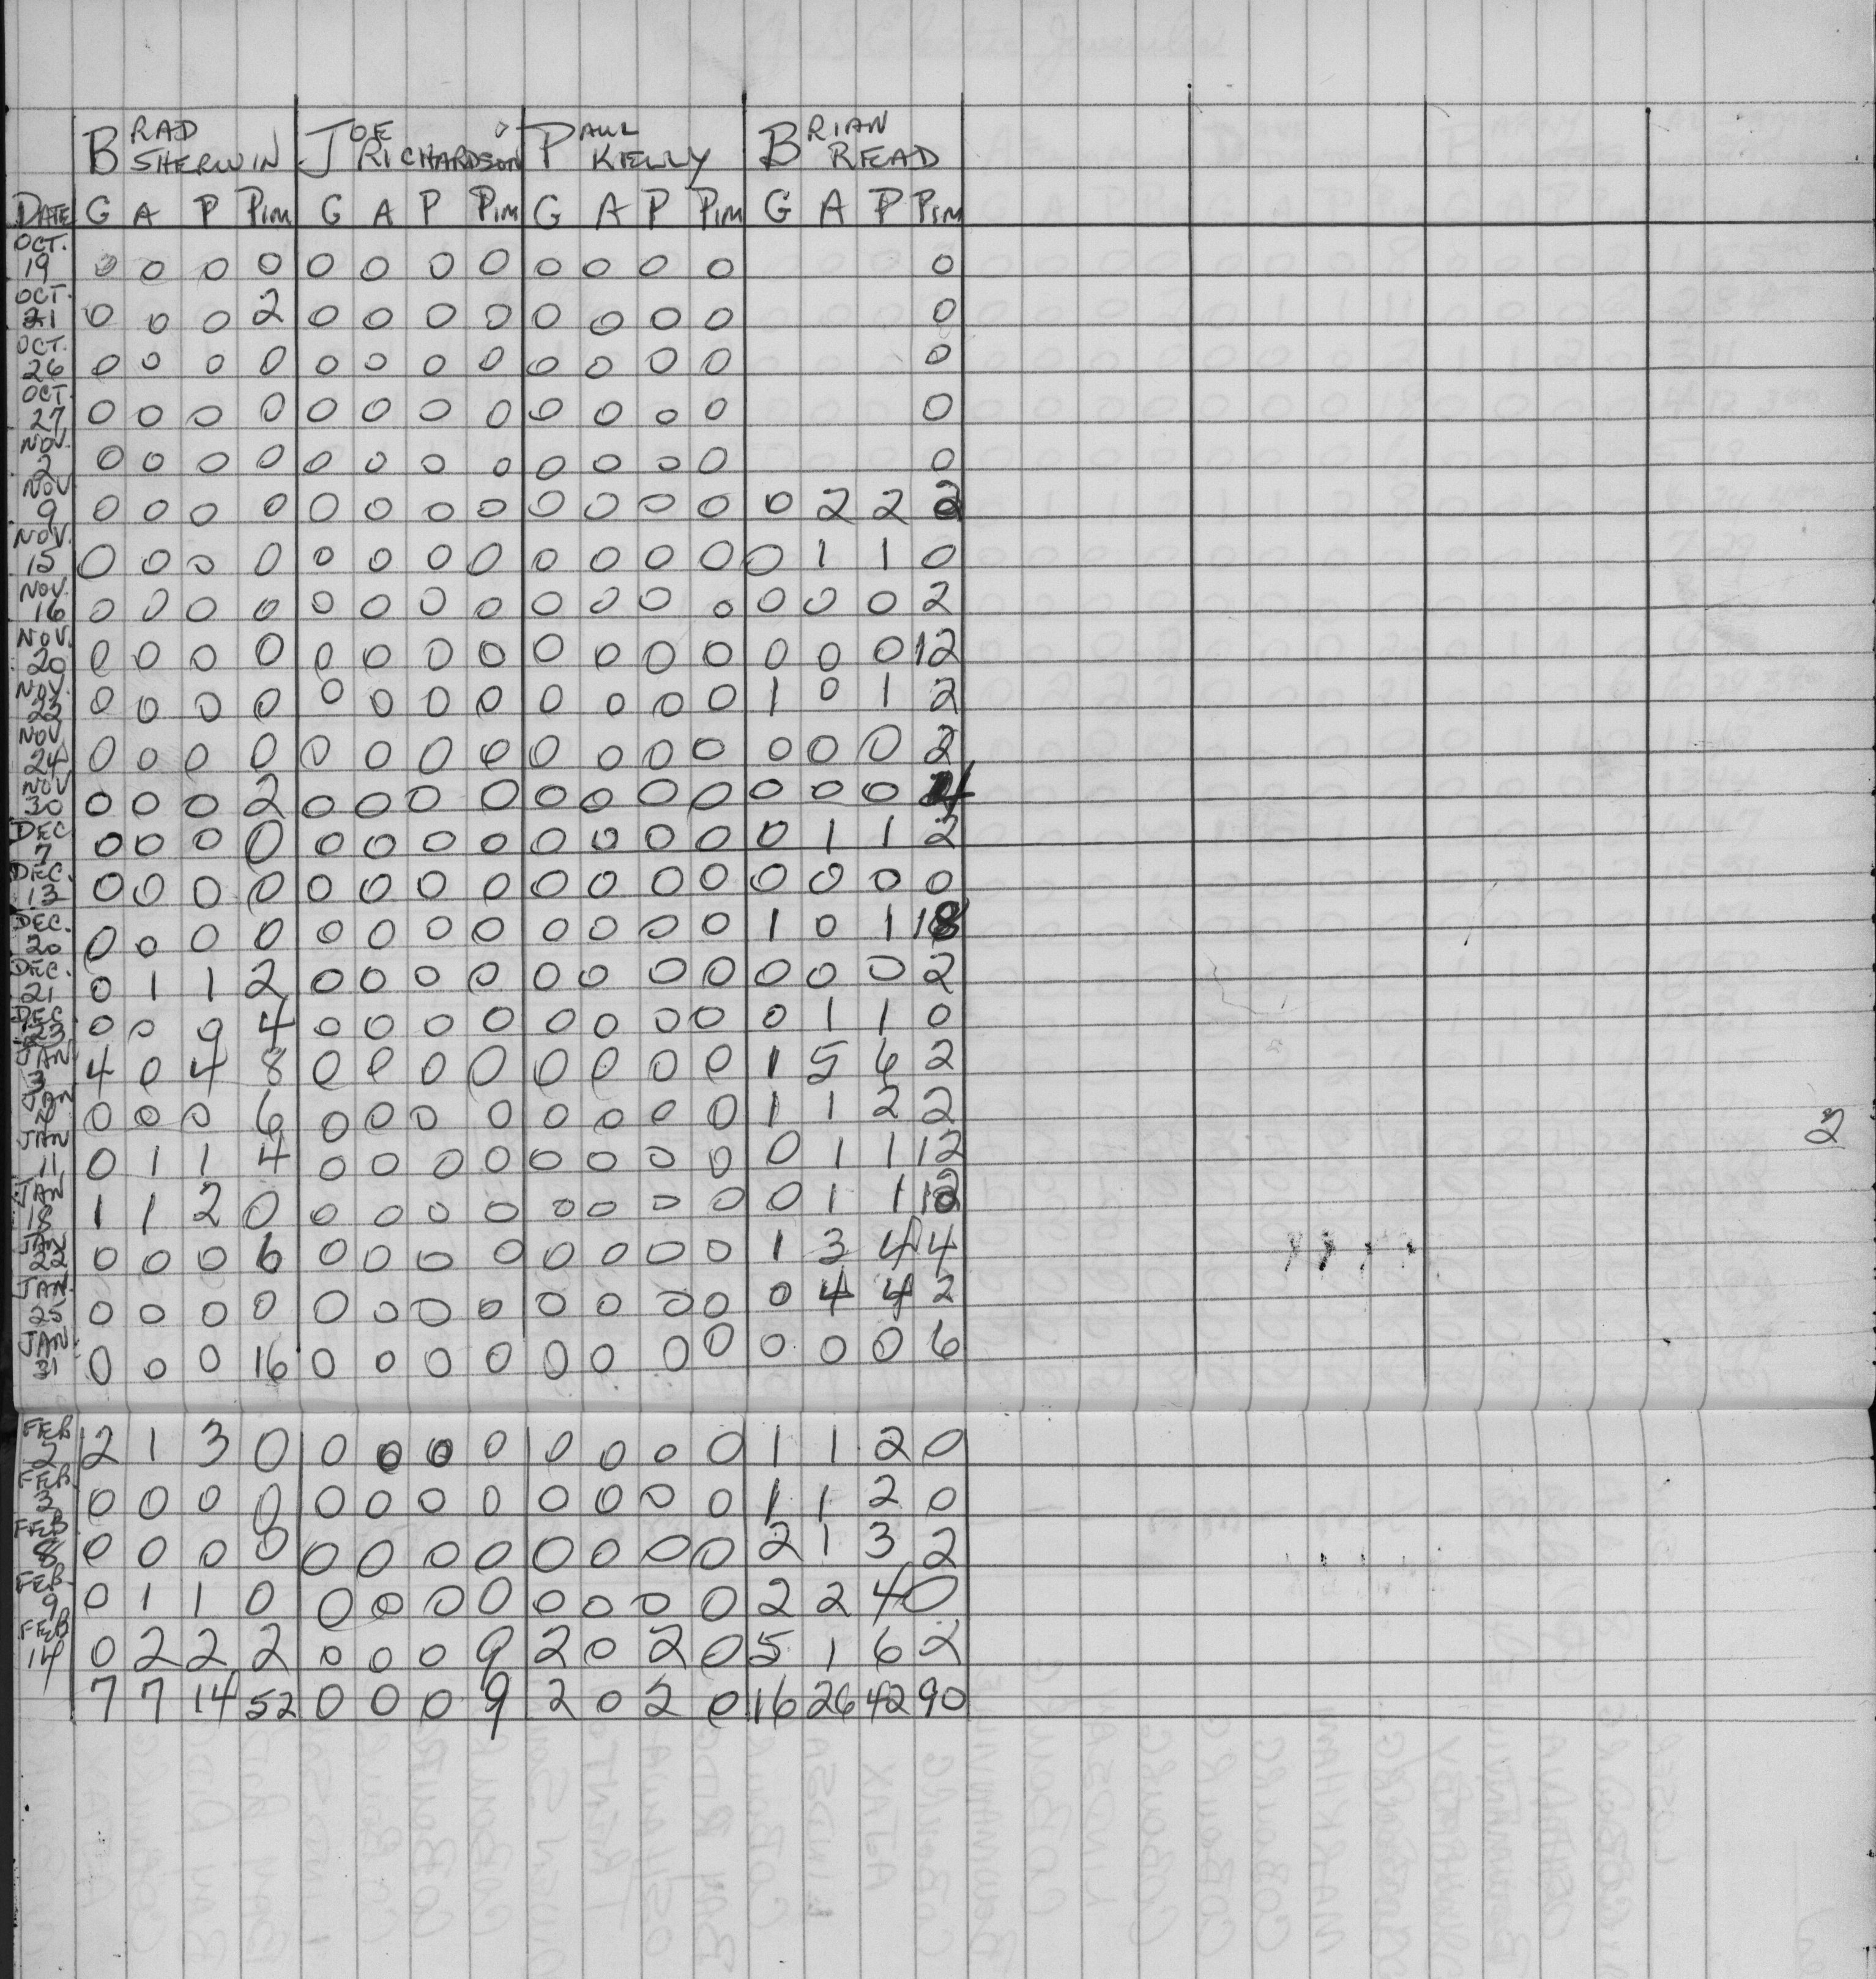 BRAD SHERWIN JOE RICHARDSON PAUL KELLY BRIAN READ
DATE G A P PIM G A P PIM G A P PIM G A P PIM
OCT. 19 0 0 0 0 0 0 0 0 0 0 0 0 0
OCT. 21 0 0 0 2 0 0 0 0 0 0 0 0 0
OCT. 26 0 0 0 0 0 0 0 0 0 0 0 0 0
OCT. 27 0 0 0 0 0 0 0 0 0 0 0 0 0
NOV. 2 0 0 0 0 0 0 0 0 0 0 0 0 0
NOV 9 0 0 0 0 0 0 0 0 0 0 0 0 0 2 2 2
NOV. 15 0 0 0 0 0 0 0 0 0 0 0 0 0 1 1 0
NOV. 16 0 0 0 0 0 0 0 0 0 0 0 0 0 0 0 2
NOV. 20 0 0 0 0 0 0 0 0 0 0 0 0 0 0 0 12
NOV. 22 0 0 0 0 0 0 0 0 0 0 0 0 1 0 1 2
NOV. 24 0 0 0 0 0 0 0 0 0 0 0 0 0 0 0 2
NOV 30 0 0 0 2 0 0 0 0 0 0 0 0 0 0 0 4
DEC 7 0 0 0 0 0 0 0 0 0 0 0 0 0 1 1 2
DEC. 13 0 0 0 0 0 0 0 0 0 0 0 0 0 0 0 0
DEC. 20 0 0 0 0 0 0 0 0 0 0 0 0 1 0 1 18
DEC. 21 0 1 1 2 0 0 0 0 0 0 0 0 0 0 0 2
DEC 23 0 0 0 4 0 0 0 0 0 0 0 0 0 1 1 0
JAN 3 4 0 4 8 0 0 0 0 0 0 0 0 1 5 6 2
JAN 0 0 0 6 0 0 0 0 0 0 0 0 1 1 2 2
JAN 11 0 1 1 4 0 0 0 0 0 0 0 0 0 1 1 12
JAN 18 1 1 2 0 0 0 0 0 0 0 0 0 0 1 1
JAN 22 0 0 0 6 0 0 0 0 0 0 0 0 1 3 4 4
JAN. 25 0 0 0 0 0 0 0 0 0 0 0 0 0 4 4 2
JAN. 31 0 0 0 16 0 0 0 0 0 0 0 0 0 0 0 6
FEB 2 2 1 3 0 0 0 0 0 0 0 0 0 1 1 2 0
FEB 3 0 0 0 0 0 0 0 0 0 0 0 0 1 1 2 0
FEB 8 0 0 0 0 0 0 0 0 0 0 0 0 2 1 3 2
FEB 9 0 1 1 0 0 0 0 0 0 0 0 0 2 2 4 0
FEB 14 0 2 2 2 0 0 0 9 2 0 2 0 5 1 6 2
7 7 14 52 0 0 0 9 2 0 2 0 16 26 42 90
2